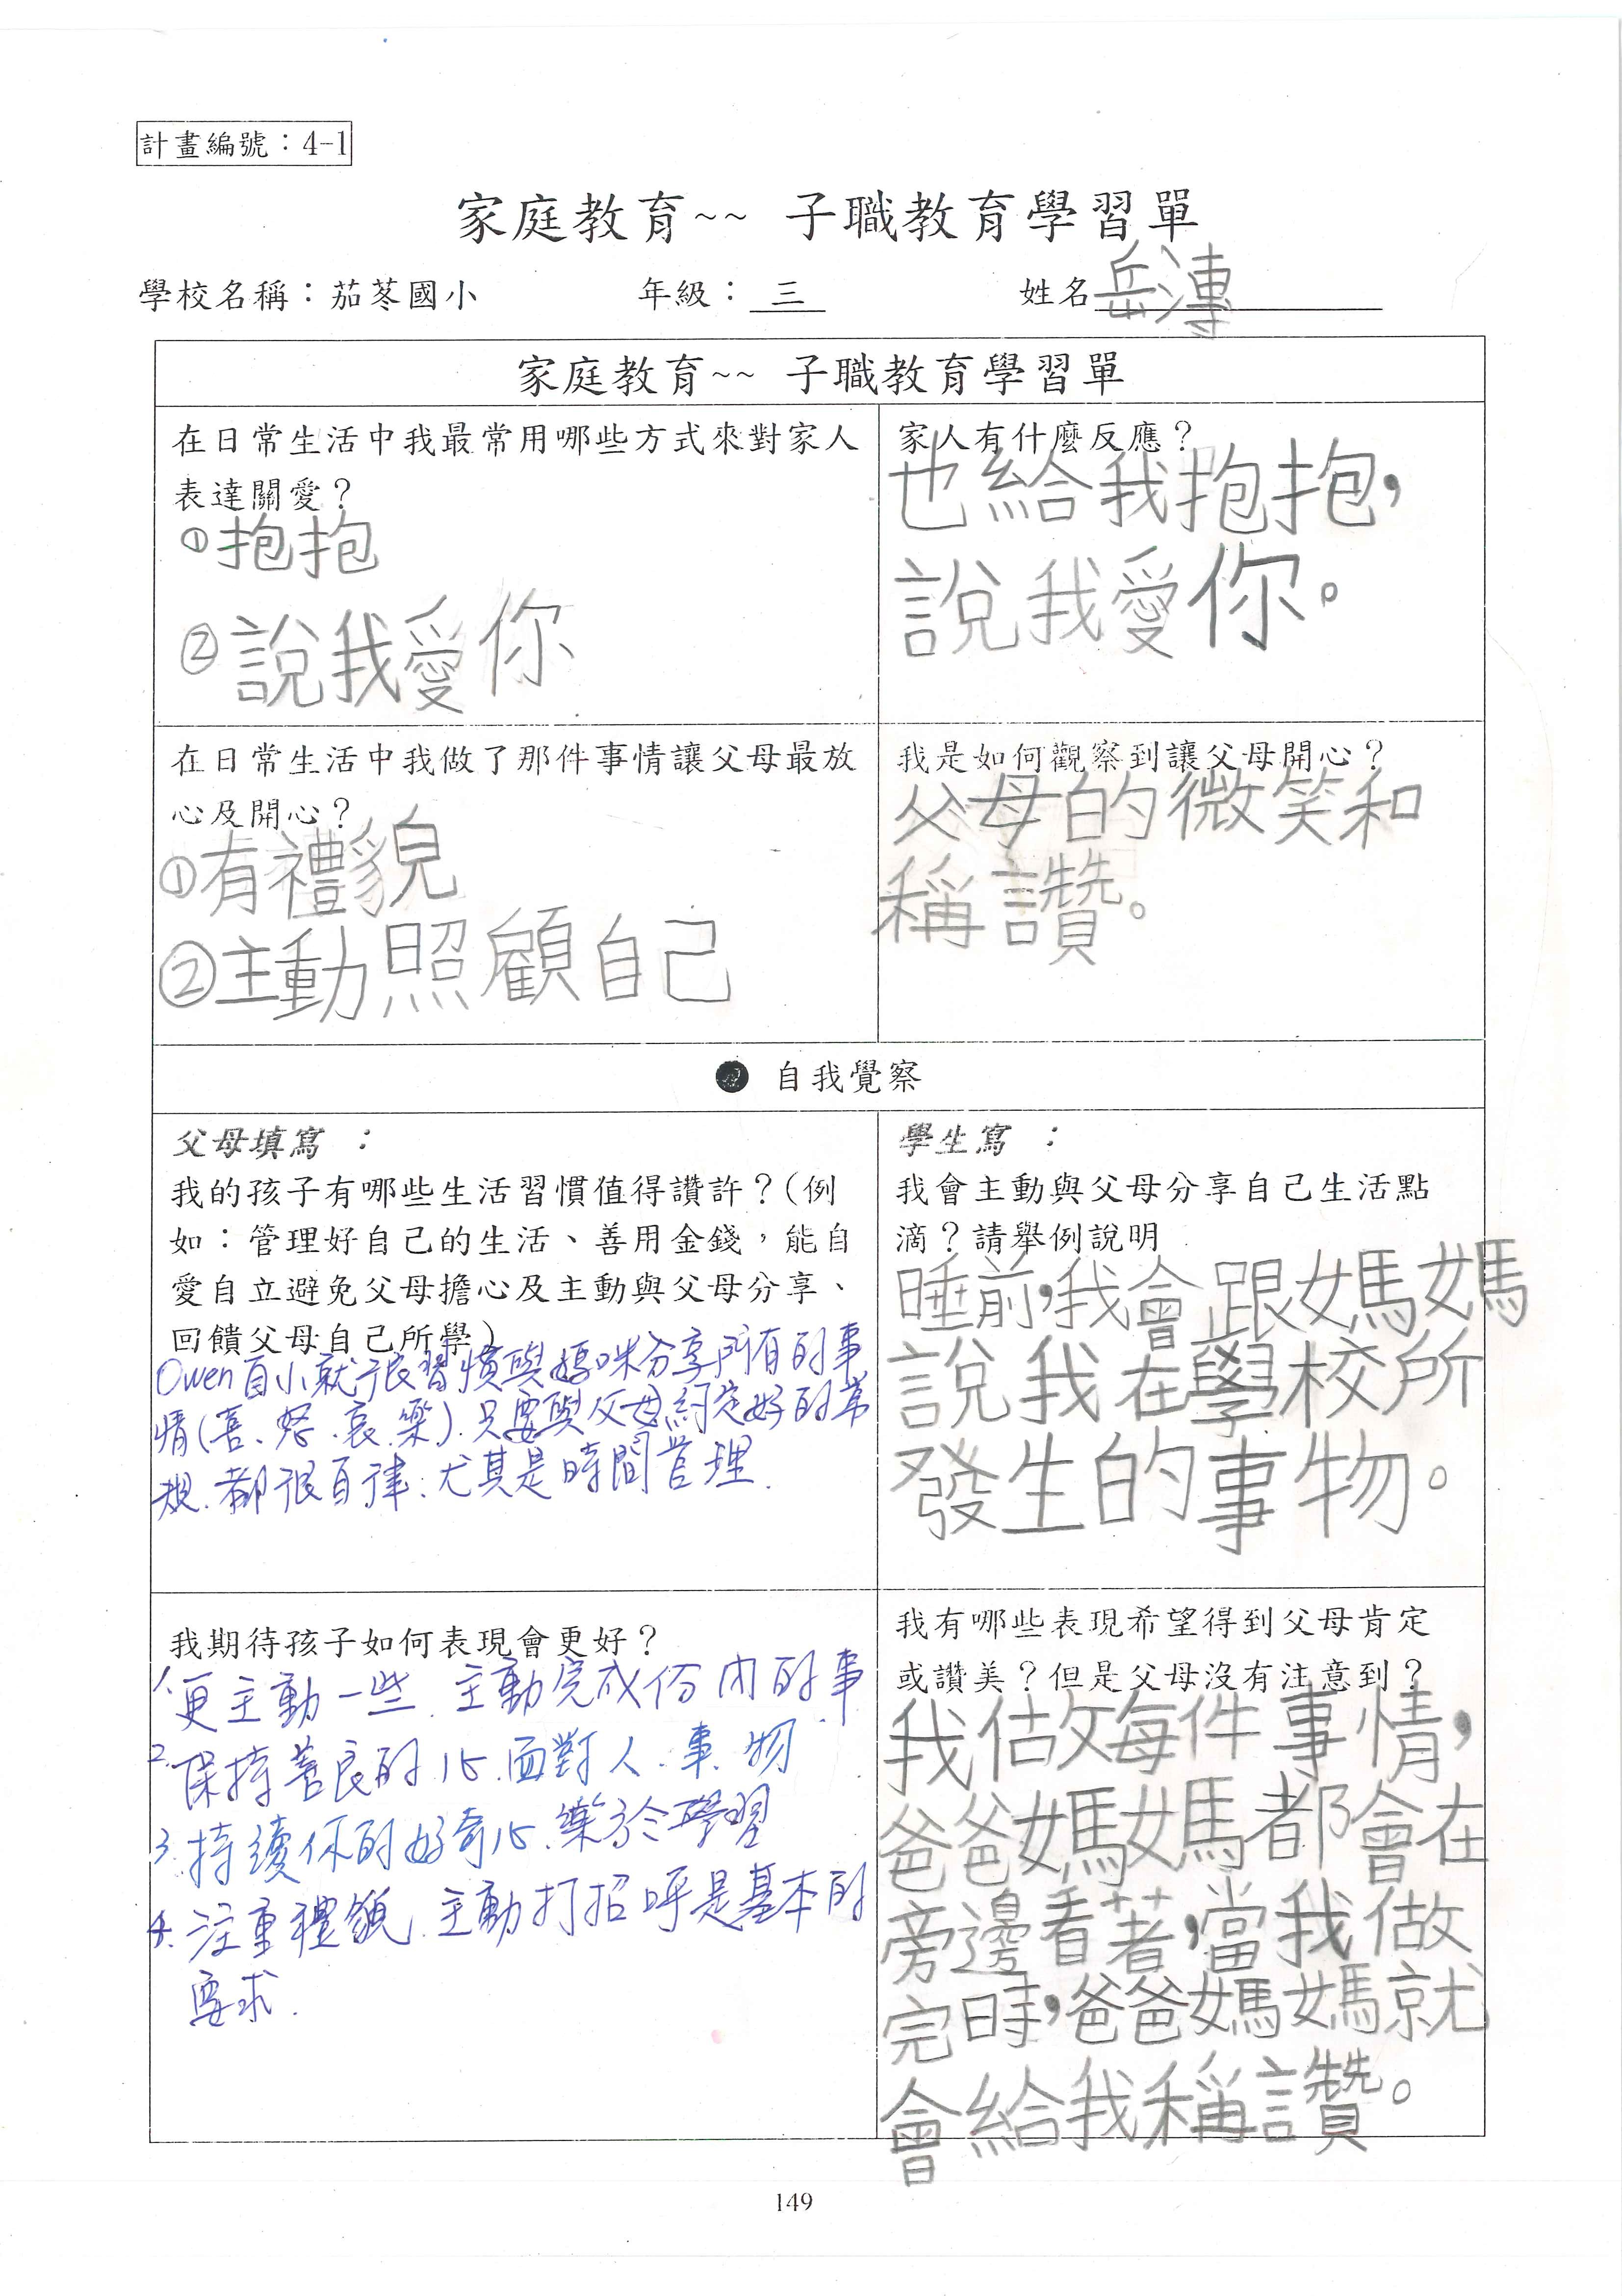 計畫編號：4-1
家庭教育~~ 子職教育學習單
學校名稱：茄苳國小 年級：三 姓名岳漙
家庭教育~~ 子職教育學習單
在日常生活中我最常用哪些方式來對家人
表達關愛？
①抱抱
②說我愛你
家人有什麼反應？
也給我抱抱，
說我愛你。
在日常生活中我做了那件事情讓父母最放
心及開心？
①有禮貌
②主動照顧自己
我是如何觀察到讓父母開心？
父母的微笑和
稱讚。
自我覺察
父母填寫：
我的孩子有哪些生活習慣值得讚許？(例
如：管理好自己的生活、善用金錢，能自
愛自立避免父母擔心及主動與父母分享、
回饋父母自己所學)
Owen自小就很習慣與媽咪分享所有的事
情(喜、怒、哀、樂).只要與父母約定好的常
規.都很自律.尤其是時間管理.
學生寫：
我會主動與父母分享自己生活點
滴？請舉例說明
睡前，我會跟媽媽
說我在學校所
發生的事物。
我期待孩子如何表現會更好？
1.更主動一些.主動完成份內的事.
2.保持善良的心.面對人.事.物
3.持續你的好奇心.樂於學習
4.注重禮貌.主動打招呼是基本的
要求.
我有哪些表現希望得到父母肯定
或讚美？但是父母沒有注意到？
我做每件事情，
爸爸媽媽都會在
旁邊看著，當我做
完時，爸爸媽媽就
會給我稱讚。
149